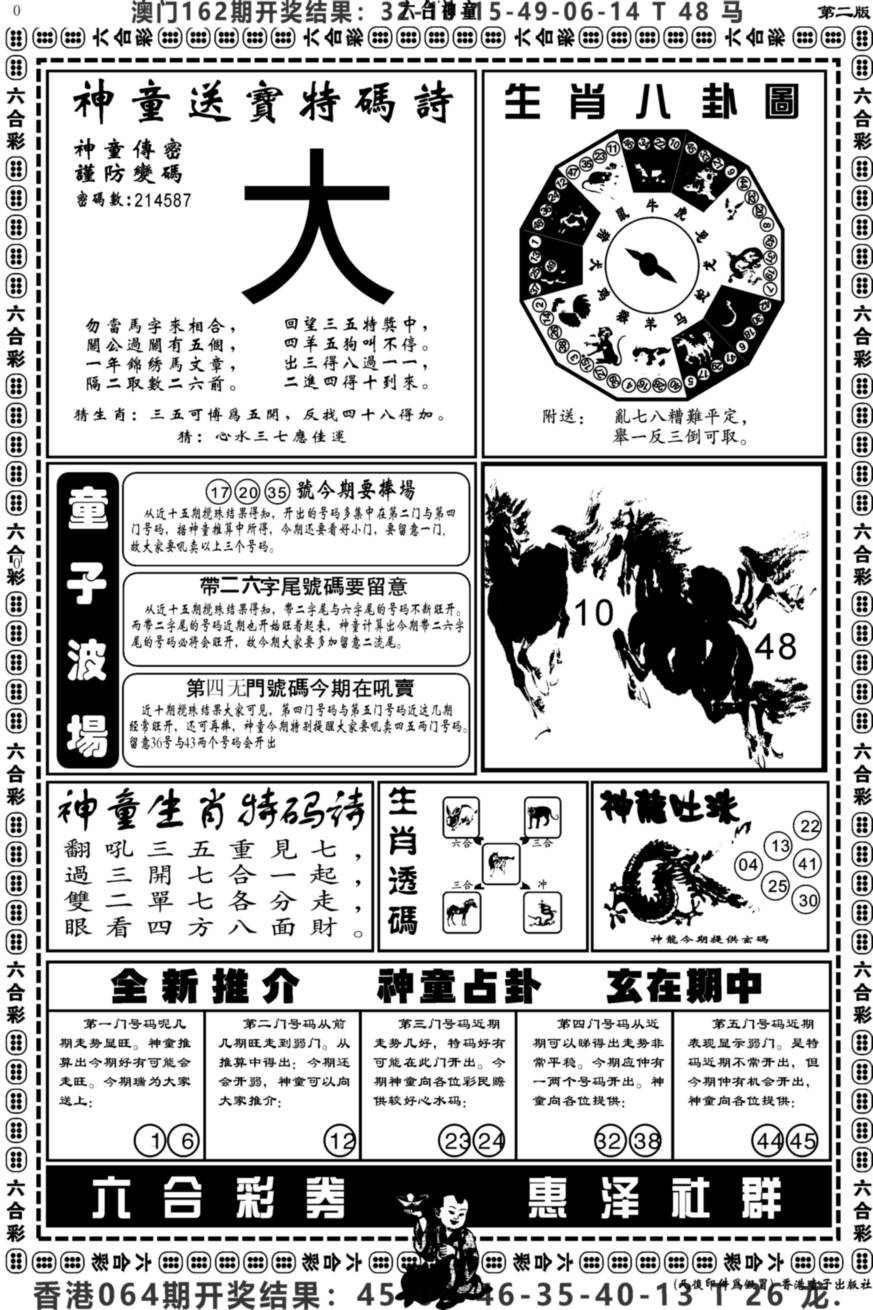 澳门162期开奖结果：
15-49-06-14 T 48 马
六合神童
第二版
神童送寶特碼詩
神童傳密
謹防變碼
密碼數:214587
大
勿當馬字來相合，
關公過關有五個，
一年錦綉馬文章，
隔二取數二六前。
回望三五特獎中，
四羊五狗叫不停。
出三得八過一一，
二進四得十到來。
猜生肖：三五可博爲五開，反找四十八得加。
猜：心水三七應佳運
生肖八卦圖
鼠 牛 虎 兔 龙 蛇 马 羊 猴 鸡 犬 猪
附送：
亂七八糟難平定，
舉一反三倒可取。
童子波場
17 20 35 號今期要捧場
从近十五期搅珠结果得知，开出的号码多集中在第二门与第四
门号码，据神童推算中所得，今期还要看好小门，要留意一门，
故大家要吼卖以上三个号码。
帶二六字尾號碼要留意
从近十五期搅珠结果得知，带二字尾与六字尾的号码不新旺开。
而带二字尾的号码近期也开始旺看起来，神童计算出今期带二六字
尾的号码必将会旺开，故今期大家要多加留意二流尾。
第四无門號碼今期在吼賣
近十期搅珠结果大家可见，第四门号码与第五门号码近这几期
经常旺开，还可再捧，神童今期特别提醒大家要吼卖四五两门号码。
留意36号与43两个号码会开出
10
48
神童生肖特码诗
翻吼三五重見七，
過三開七合一起，
雙二單七各分走，
眼看四方八面財。
生肖透碼
六合
三合
三合
冲
神龍吐珠
22
13
04
41
25
30
神龍今期提供玄碼
全新推介 神童占卦 玄在期中
第一门号码呢几
期走势显旺。神童推
算出今期好有可能会
走旺。今期瑞为大家
送上：
1 6
第二门号码从前
几期旺走到弱门。从
推算中得出：今期还
会开弱，神童可以向
大家推介：
12
第三门号码近期
走势几好，特码好有
可能在此门开出。今
期神童向各位彩民赡
供较好心水码：
23 24
第四门号码从近
期可以睇得出走势非
常平稳。今期应仲有
一两个号码开出。神
童向各位提供：
32 38
第五门号码近期
表现显示弱门。是特
码近期不常开出，但
今期仲有机会开出，
神童向各位提供：
44 45
六合彩券 惠泽社群
香港064期开奖结果：45
46-35-40-13 T 26 龙.